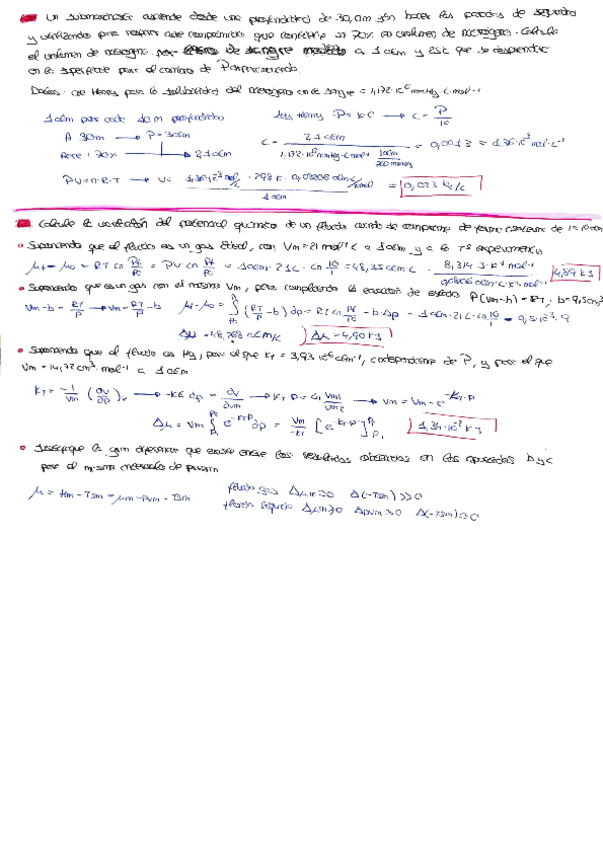 Un submarinista asciende desde una profundidad de 30,0m sin hacer las paradas de seguridad
y utilizando para respirar aire comprimido que contiene un 70% en volumen de nitrógeno. Calcula
el volumen de nitrógeno por a 1 atm y 25C que se desprende
en la superficie por el cambio de P
Datos: cte Henry para la solubilidad del nitrógeno en sangre = 1,172·10⁶ mmHg·L·mol⁻¹
1 atm por cada 10 m profundidad Ley Henry P=k·C → C = P/k
A 30m → P=3atm C = 2,1atm / 1,172·10⁶ mmHg·L·mol⁻¹ 1atm/760mmHg = 0,0013 = 1,36·10⁻³ mol·L⁻¹
Aire: 70% → 2,1atm
PV=n·R·T → V= 1,36·10⁻³ mol/L · 298 K · 0,08206 atm·L/K·mol / 1 atm = 0,033 L/L
Calcule la variación del potencial químico de un fluido cuando se comprime de forma de 1 a 10 atm
Suponiendo que el fluido es un gas ideal, con Vm=21 mol⁻¹ L a 1 atm y a la Tª experimental
μf-μ0 = RT ln Pf/P0 = PV ln Pf/P0 = 1atm·21L·ln 10/1 = 48,35 atm·L · 8,314 J·K⁻¹mol⁻¹ / 0,08206 atm·L·K⁻¹·mol⁻¹ 4,89 kJ
Suponiendo que es un gas con el mismo Vm, pero cumpliendo la ecuación de estado P(Vm-b) = RT, b=9,5cm³
Vm-b = RT/P → Vm = RT/P -b μf-μ0 = ∫ (RT/P -b) dp = RT ln Pf/P0 - b·Δp = 1atm·21L·ln 10/1 - 9,5·10⁻³·9
Δμ = 48,768 atm/L Δμ = 4,90 kJ
Suponiendo que el fluido es Hg, para el que KT = 3,93·10⁻⁶ atm⁻¹, independiente de P, y para el que
Vm = 14,77 cm³·mol⁻¹ a 1 atm
KT = -1/Vm (∂V/∂P)T → -Kt dp = dv/dvm → KT P = Ln Vm1/Vm2 → Vm = Vm·e^-KT·P
Δμ = Vm ∫ e^-KT·P dp = Vm/-KT [e^-KT·P] 1,34·10⁻² kJ
Justifique la gran diferencia que existe entre los resultados obtenidos en los apartados b y c
para el mismo intervalo de presión
μ = Hm - TSm = μm + PVm - TSm fluido gas Δμm≥0 Δ(-TSm) >>0
fluido líquido Δμm≥0 ΔPVm≈0 Δ(-TSm)≈0